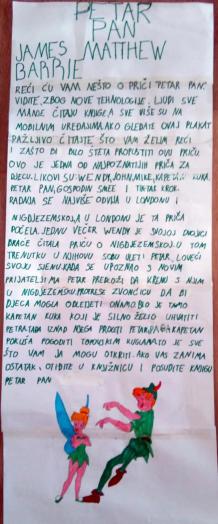 PETAR
PAN
JAMES MATTHEW
BARRIE
REĆI ĆU VAM NEŠTO O PRIČI PETAR PAN.
VIDITE, ZBOG NOVE TEHNOLOGIJE, LJUDI SVE
MANJE ČITAJU KNJIGE A SVE VIŠE SU NA
MOBILNIM UREĐAJIMA. AKO GLEDATE OVAJ PLAKAT
PAŽLJIVO ČITAJTE ŠTO VAM ŽELIM REĆI
I ZAŠTO BI BILO ŠTETA PROPUSTITI OVU PRIČU.
OVO JE JEDNA OD NAJPOZNATIJIH PRIČA ZA
DJECU. LIKOVI SU: WENDY, JOHN, MIKE, KAPETAN KUKA,
PETAR PAN, GOSPODIN SMEE I TIKTAK KROK.
RADNJA SE NAJVIŠE ODVIJA U LONDONU I
NIGDJEZEMSKOJ. U LONDONU JE TA PRIČA
POČELA. JEDNU VEČER WENDY JE SVOJOJ DVOJICI
BRAĆE ČITALA PRIČU O NIGDJEZEMSKOJ. U TOM
TRENUTKU U NJIHOVU SOBU ULETI PETAR, LOVEĆI
SVOJU SJENU. KADA SE UPOZNAO S NOVIM
PRIJATELJIMA PETAR PREDLOŽI DA KRENU S NJIM
U NIGDJEZEMSKU. PROTRESE ZVONČICU DA BI
DJECA MOGLI ODLETJETI ONAMO. BIO JE TAMO
KAPETAN KUKA KOJI JE SILNO ŽELIO UHVATITI
PETRA. TADA IZNAD NJEGA PROLETI PETAR KAPETAN
POKUŠA POGODITI TOPOVSKIM KUGLAMA. TO JE SVE
ŠTO VAM JA MOGU OTKRITI. AKO VAS ZANIMA
OSTATAK, OTIĐITE U KNJIŽNICU I POSUDITE KNJIGU
PETAR PAN